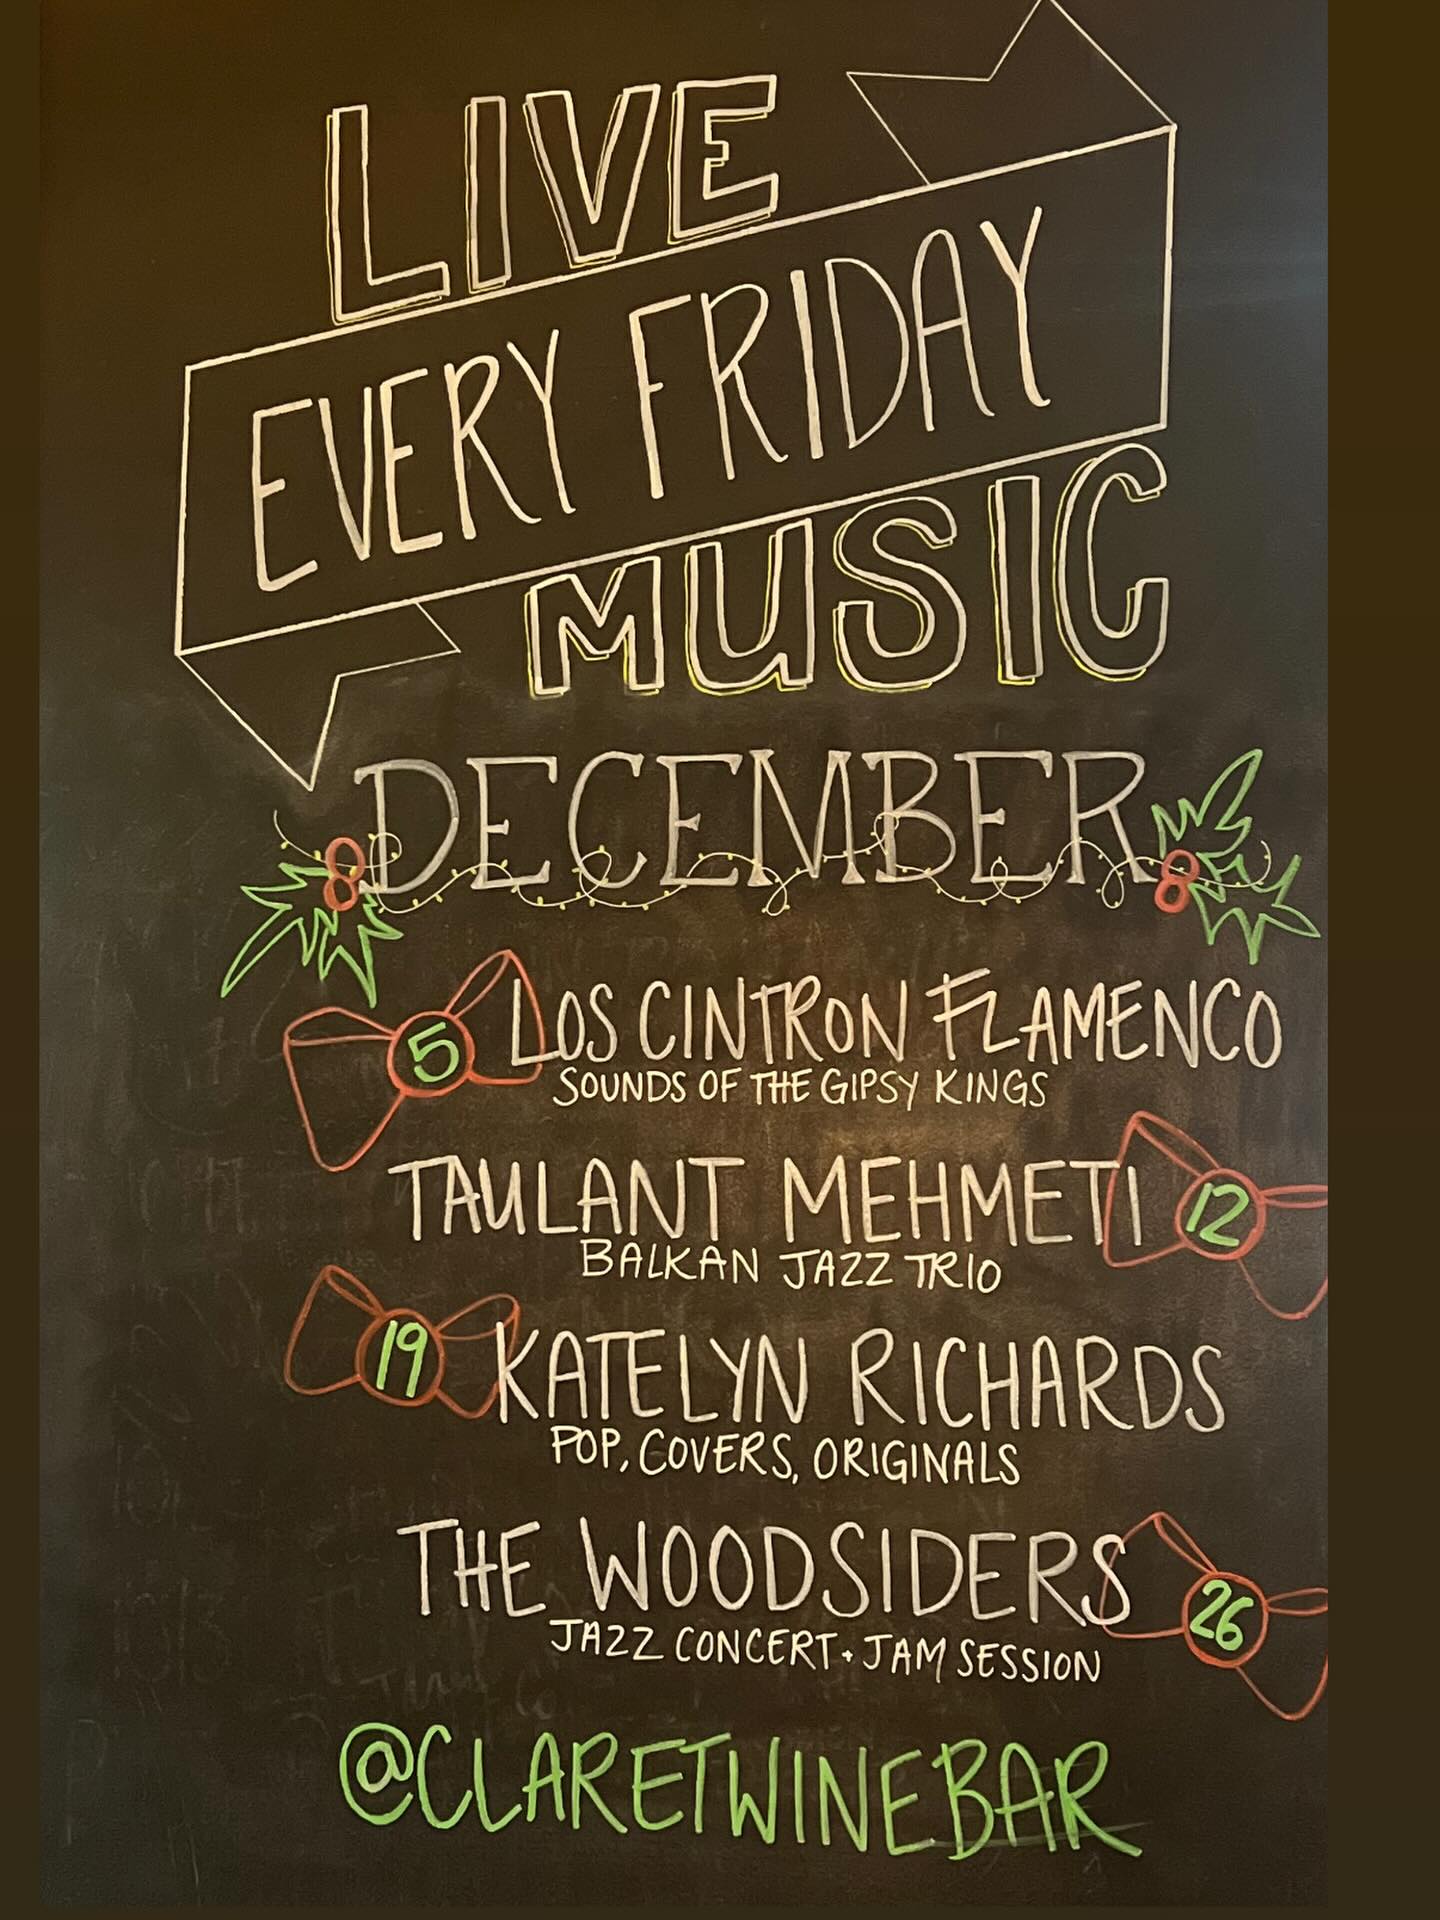 LIVE
EVERY FRIDAY
MUSIC
DECEMBER
5 LOS CINTRON FLAMENCO
SOUNDS OF THE GIPSY KINGS
TAULANT MEHMETI 12
BALKAN JAZZ TRIO
19 KATELYN RICHARDS
POP, COVERS, ORIGINALS
THE WOODSIDERS 26
JAZZ CONCERT + JAM SESSION
@CLARETWINEBAR